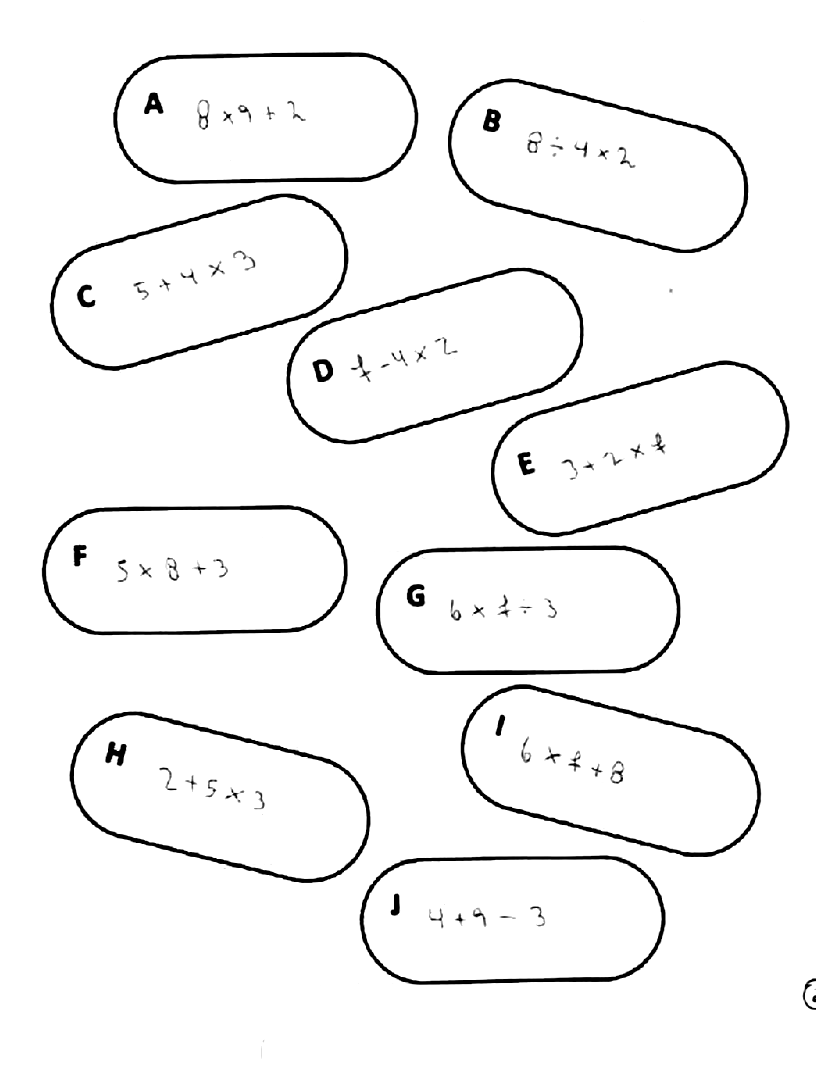 A 8 × 9 + 2
B 8 ÷ 4 × 2
C 5 + 4 × 3
D 7 - 4 × 2
E 3 + 2 × 7
F 5 × 8 + 3
G 6 × 7 ÷ 3
H 2 + 5 × 3
I 6 × 7 + 8
J 4 + 9 - 3